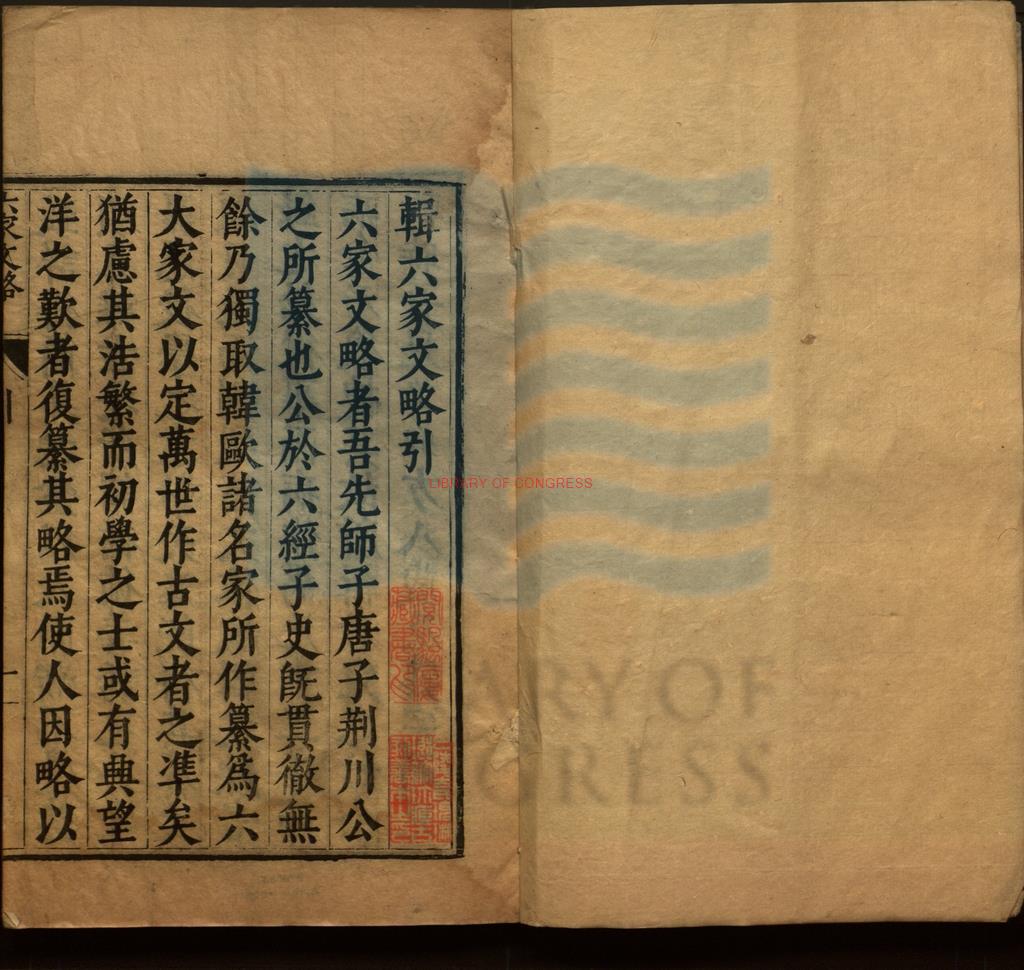 輯六家文略引
六家文略者吾先師子唐子荆川公
之所纂也公於六經子史旣貫徹無
餘乃獨取韓歐諸名家所作纂爲六
大家文以定萬世作古文者之凖矣
猶慮其浩繁而初學之士或有典望
洋之歎者復纂其略焉使人因略以
六家文略
引
一
LIBRARY OF CONGRESS
LIBRARY OF
CONGRESS